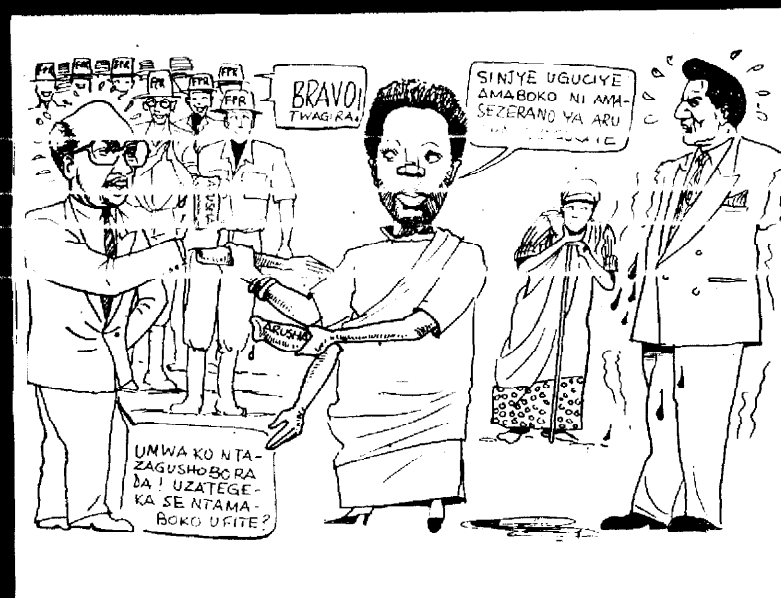 FPR
FPR
FPR
FPR
FPR
FPR
FPR
BRAVO!
TWAGIRA!
SINJYE UGUCIYE
AMABOKO NI AMA-
SEZERANO YA ARU
ARUSHA
UMWAKO NTA-
ZAGUSHOBORA
DA! UZATEGE-
KA SE NTAMA-
BOKO UFITE?